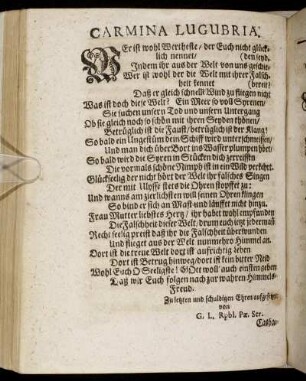 CARMINA LUGUBRIA.
WEr ist wohl Wertheste/ der Euch nicht glück-
lich nennet/
Indem ihr aus der Welt von uns geschie-
Wer ist wohl der die Welt mit ihrer Falsch-
heit kennet
Daß er gleich schnell Wind zu fliegen nicht
Was ist doch diese Welt? Ein Meer so voll Syrenen/
Sie suchen unsern Tod und unsern Untergang
Ob sie gleich noch so schön mit ihren Seyden thönen/
Betrüglich ist die Faust/ betrüglich ist der Klang/
So bald ein Ungestüm dein Schiff wird unterschmeissen/
Und man dich über Bort ins Wasser plumpen hört
So bald wird die Syren in Stücken dich zerreissen
Die vormals schöne Nymph ist in ein Wild verkehrt.
Glückselig der nicht hört der Welt ihr falsches Singen
Der mit Ulysse stets die Ohren stopffet zu:
Und wanns am zierlichsten will seinen Ohren klingen
So bind er sich an Mast und läufft nicht hinzu.
Frau Mutter liebstes Herz/ ihr habt wohl empfunden
Die Falschheit dieser Welt/ drum euch itzt jederman
Recht seelig preist daß ihr die Falschheit überwunden
Und flieget aus der Welt nunmehro Himmel an.
Dort ist die treue Welt dort ist auffrichtig leben
Dort ist Betrug hinweg/ dort ist kein bitter Neid
Wohl Euch O Seeligste! GOtt woll' auch einsten geben
Daß wir Euch folgen nach zur wahren Himmels-
Freud.
Zu letzten und schuldigen Ehren auffgesetzt
von
G. L. Rpbl. Pæ. Ser.